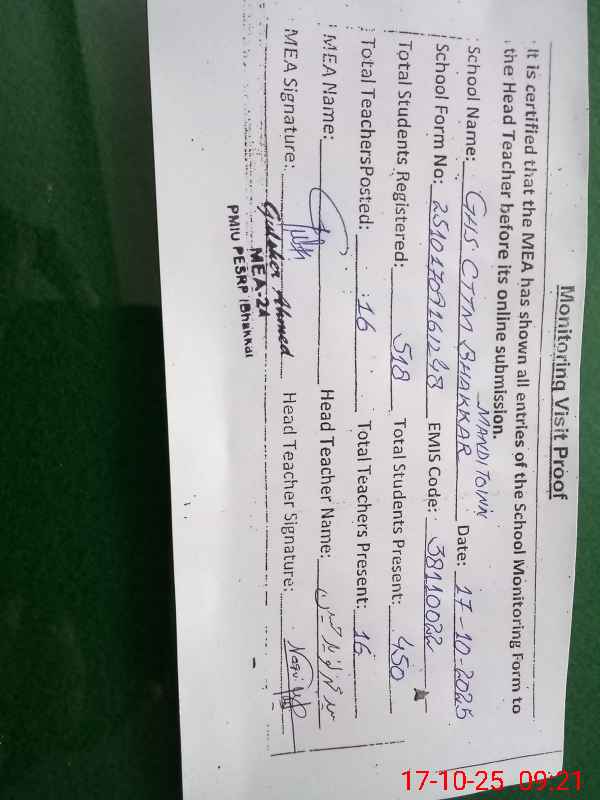 Monitoring Visit Proof
It is certified that the MEA has shown all entries of the School Monitoring Form to
the Head Teacher before its online submission.
MANDITOWN
School Name: GHS CTTM BHAKKAR Date: 17-10-2025
School Form No: EMIS Code:
Total Students Registered: 518 Total Students Present: 450
Total TeachersPosted: 16 Total Teachers Present: 16
MEA Name: Head Teacher Name:
MEA Signature: Head Teacher Signature:
Gulsher Ahmed
MEA-21
PMIU PESRP (Bhakkar
17-10-25 09:21